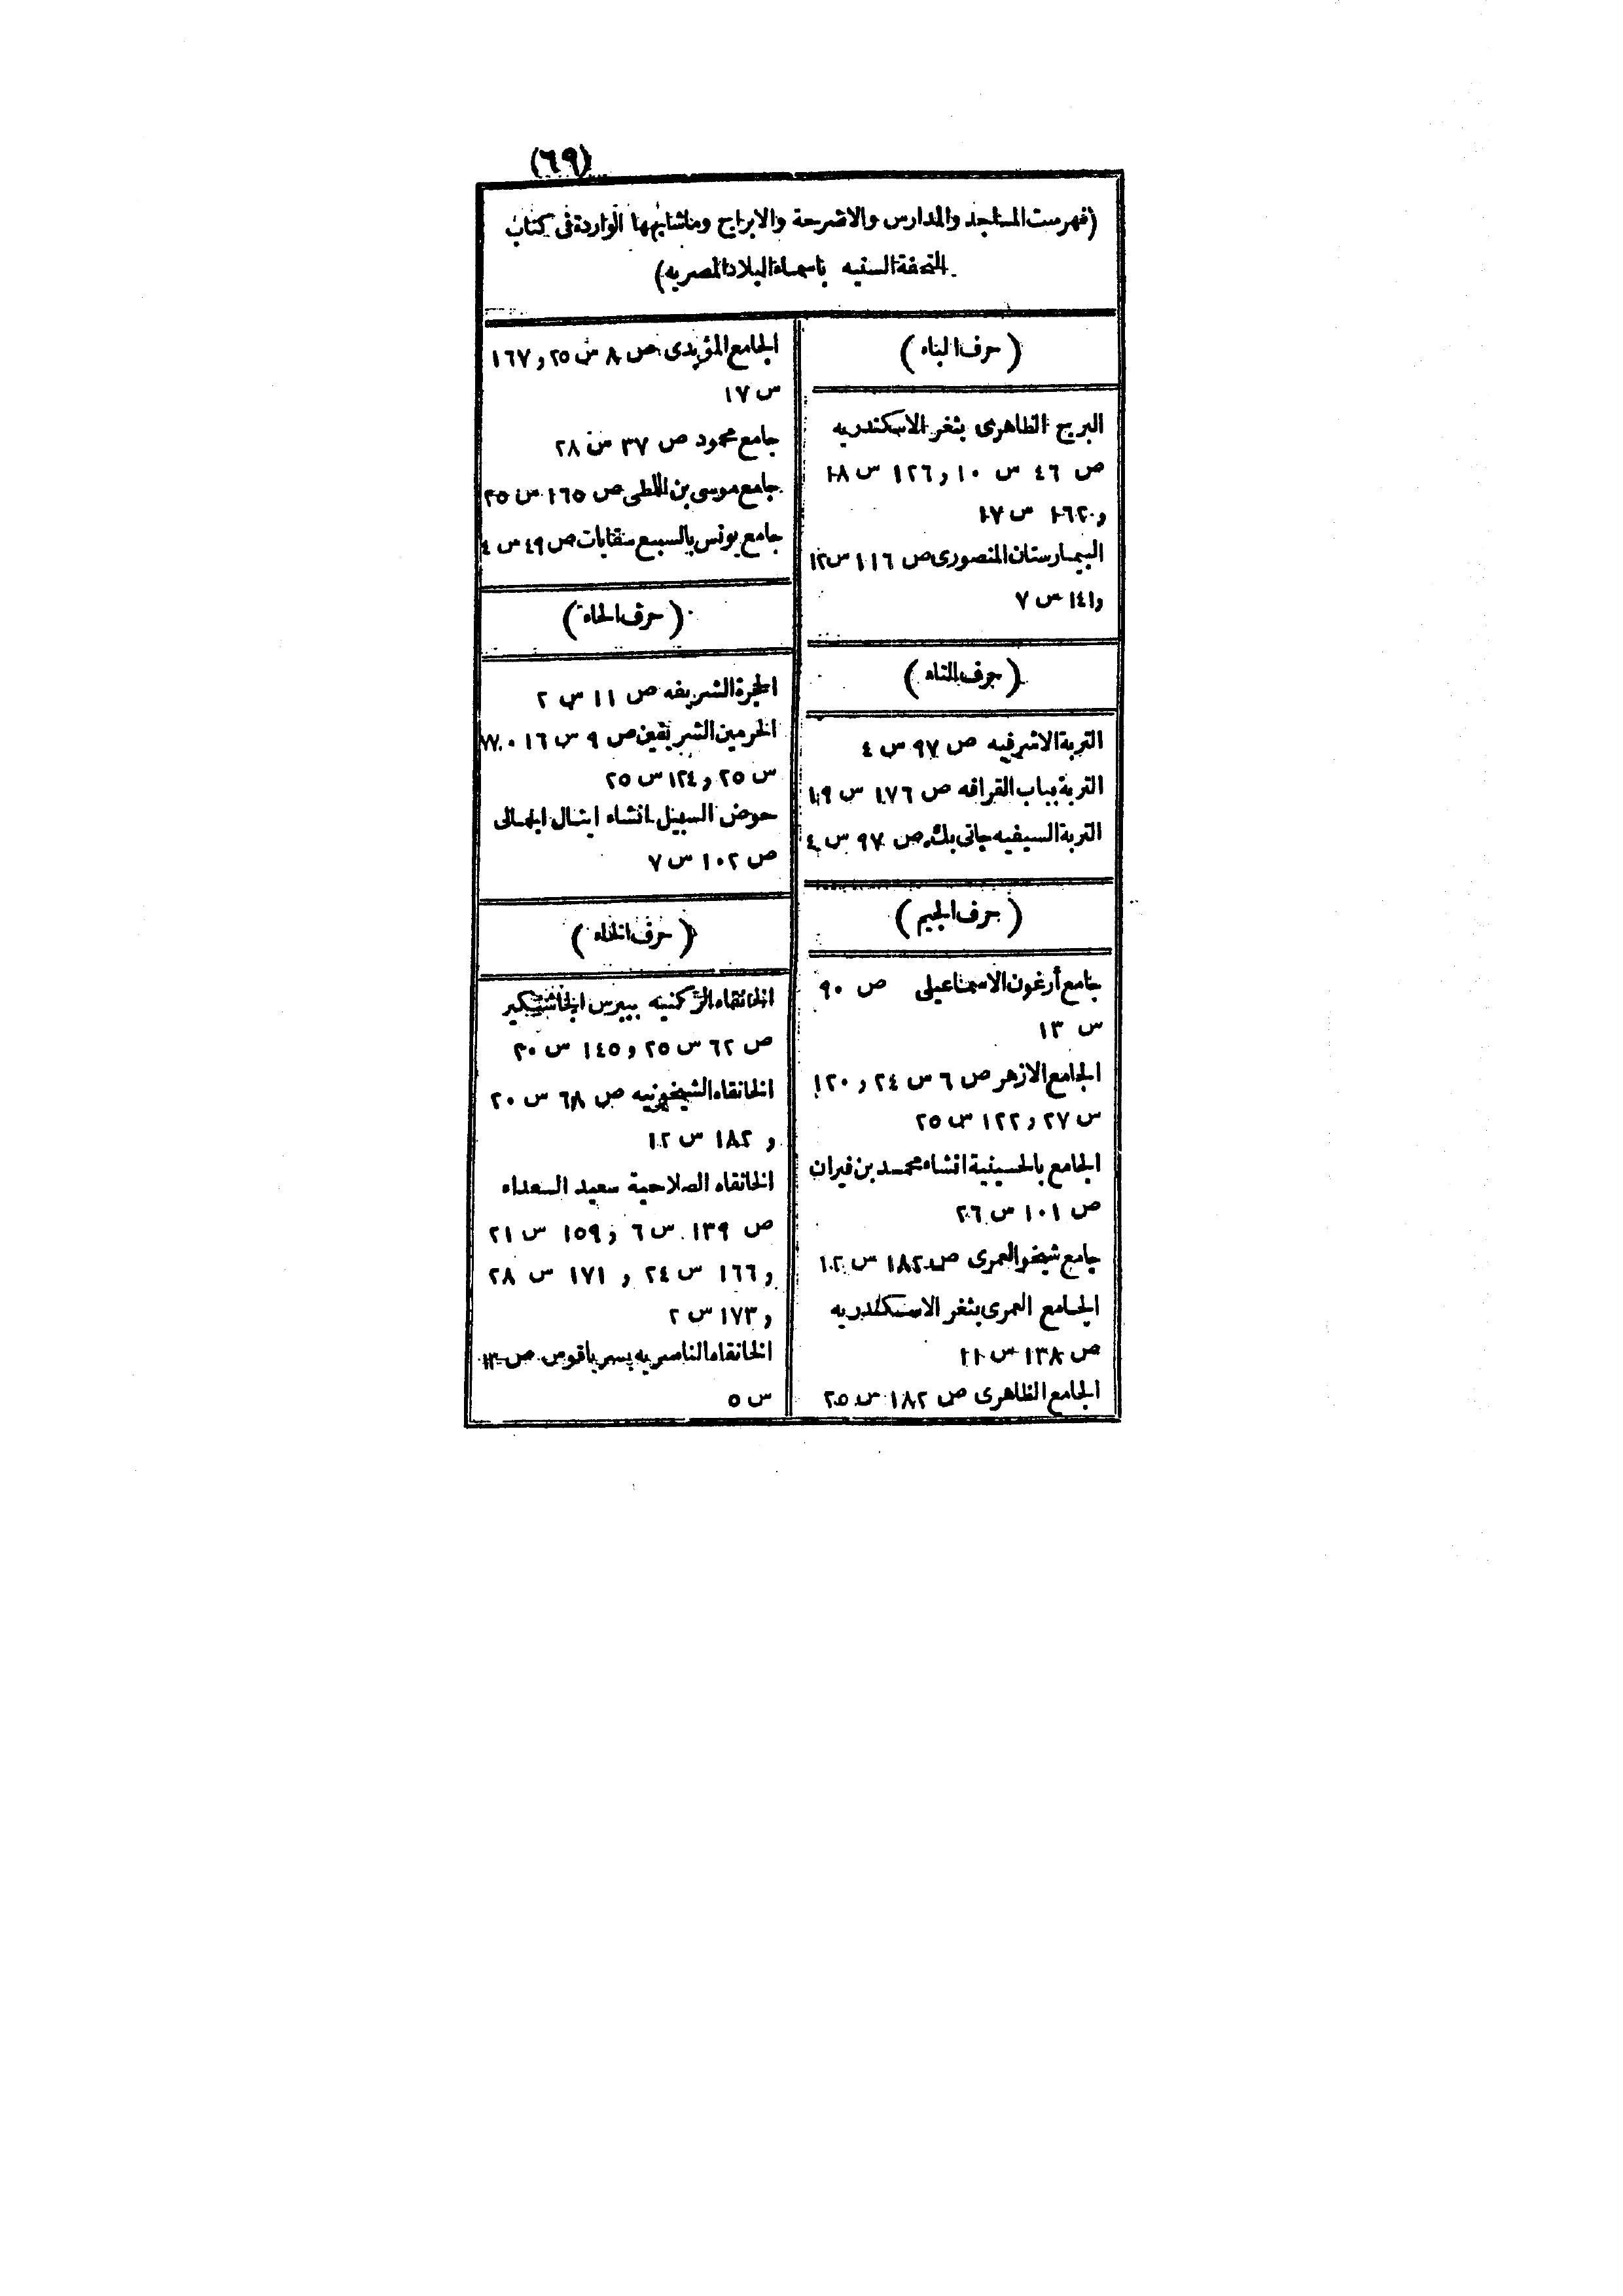 (٦٩)
(فهرست المساجد والمدارس والاضرحة والابراج وماشابهها الواردة فى كتاب
التحفة السنيه باسماء البلاد المصريه)
(حرف الباء)
البرج الظاهرى بثغر الاسكندريه
ص ٤٦ س ١٠ و ١٢٦ س ١٨
و ١٦٢ س ١٧
البيمارستان المنصورى ص ١١٦ س ١٢
و ١٤١ س ٧
(حرف التاء)
التربة الاشرفيه ص ٩٧ س ٤
التربة بباب القرافه ص ١٧٦ س ١٩
التربة السيفيه جانى بك ص ٩٧ س ٤
(حرف الجيم)
جامع أرغون الاسماعيلى ص ٩٠
س ١٣
الجامع الازهر ص ٦ س ٢٤ و ١٢٠
س ٢٧ و ١٢٢ س ٢٥
الجامع بالحسينية انشاء محمد بن فيران
ص ١٠١ س ٢٦
جامع شيخو العمرى ص ١٨٢ س ١٢
الجامع العمرى بثغر الاسكندريه
ص ١٣٨ س ٢١
الجامع الظاهرى ص ١٨٢ س ٢٥
الجامع المؤيدى ص ٨ س ٢٥ و ١٦٧
س ١٧
جامع محمود ص ٣٧ س ٢٨
جامع موسى بن اللطى ص ١٦٥ س ٢٥
جامع يونس بالسبع سقايات ص ٤٩ س ٤
(حرف الحاء)
الحجرة الشريفه ص ١١ س ٢
الحرمين الشريفين ص ٩ س ١٦
س ٢٥ و ١٢٤ س ٢٥
حوض السبيل انشاء اينال الجمالى
ص ١٠٢ س ٧
(حرف الخاء)
الخانقاه الركنيه بيبرس الجاشنكير
ص ٦٢ س ٢٥ و ١٤٥ س ٣٠
الخانقاه الشيخونيه ص ٦٨ س ٢٠
و ١٨٢ س ١٢
الخانقاه الصلاحية سعيد السعداء
ص ١٣٩ س ٦ و ١٥٩ س ٢١
و ١٦٦ س ٢٤ و ١٧١ س ٢٨
و ١٧٣ س ٢
الخانقاه الناصريه بسرياقوس ص
س ٥